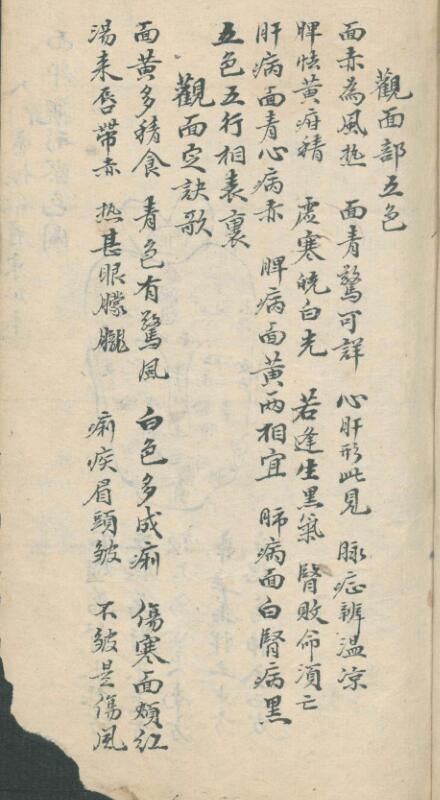 觀面部五色
面赤為風热　面青驚可詳　心肝形此見　脉症辨温凉
脾怯黃疳積　虗寒皖白光　若逢生黑氣　腎敗命湏亡
肝病面青心病赤　脾病面黃两相宜　肺病面白腎病黑
五色五行相表裏
觀面定訣歌
面黃多積食　青色有驚風　白色多成痢　傷寒面頰红
湯来唇帶赤　热甚眼朦朧　痢疾眉頭皱　不皱是傷風